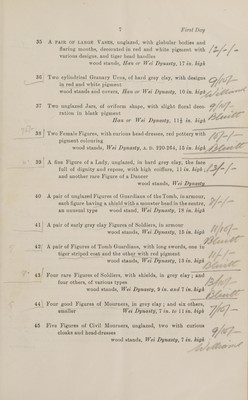 7
First Day
35 A PAIR OF LARGE VASES, unglazed, with globular bodies and
flaring mouths, decorated in red and white pigment with
various designs, and tiger head handles
wood stands, Han or Wei Dynasty, 17 in. high
12/-/-
36 Two cylindrical Granary Urns, of hard grey clay, with designs
in red and white pigment
wood stands and covers, Han or Wei Dynasty, 10 in. high
37 Two unglazed Jars, of oviform shape, with slight floral deco-
ration in bluish pigment
Han or Wei Dynasty, 11½ in. high
Bluett
38 Two Female Figures, with various head-dresses, red pottery with
pigment colouring
wood stands, Wei Dynasty, A. D. 220-264, 15 in. high
Bluett
39 A fine Figure of a Lady, unglazed, in hard grey clay, the face
full of dignity and repose, with high coiffure, 11 in. high
and another rare Figure of a Dancer
wood stands, Wei Dynasty
40 A pair of unglazed Figures of Guardians of the Tomb, in armour,
each figure having a shield with a monster head in the centre,
an unusual type wood stand, Wei Dynasty, 18 in. high
41 A pair of early grey clay Figures of Soldiers, in armour
wood stands, Wei Dynasty, 15 in. high
Bluett
42 A pair of Figures of Tomb Guardians, with long swords, one in
tiger striped coat and the other with red pigment
wood stands, Wei Dynasty, 13 in. high
Bluett
43 Four rare Figures of Soldiers, with shields, in grey clay; and
four others, of various types
wood stands, Wei Dynasty, 9 in. and 7 in. high
Bluett
44 Four good Figures of Mourners, in grey clay; and six others,
smaller Wei Dynasty, 7 in. to 11 in. high
7/10/-
45 Five Figures of Civil Mourners, unglazed, two with curious
cloaks and head-dresses
wood stands, Wei Dynasty, 7 in. high
9/10/-